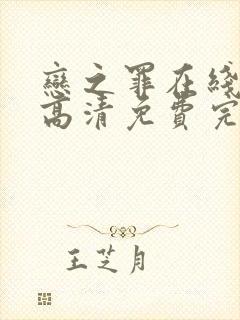 戀之罪在綫
高清免費完
王芝月